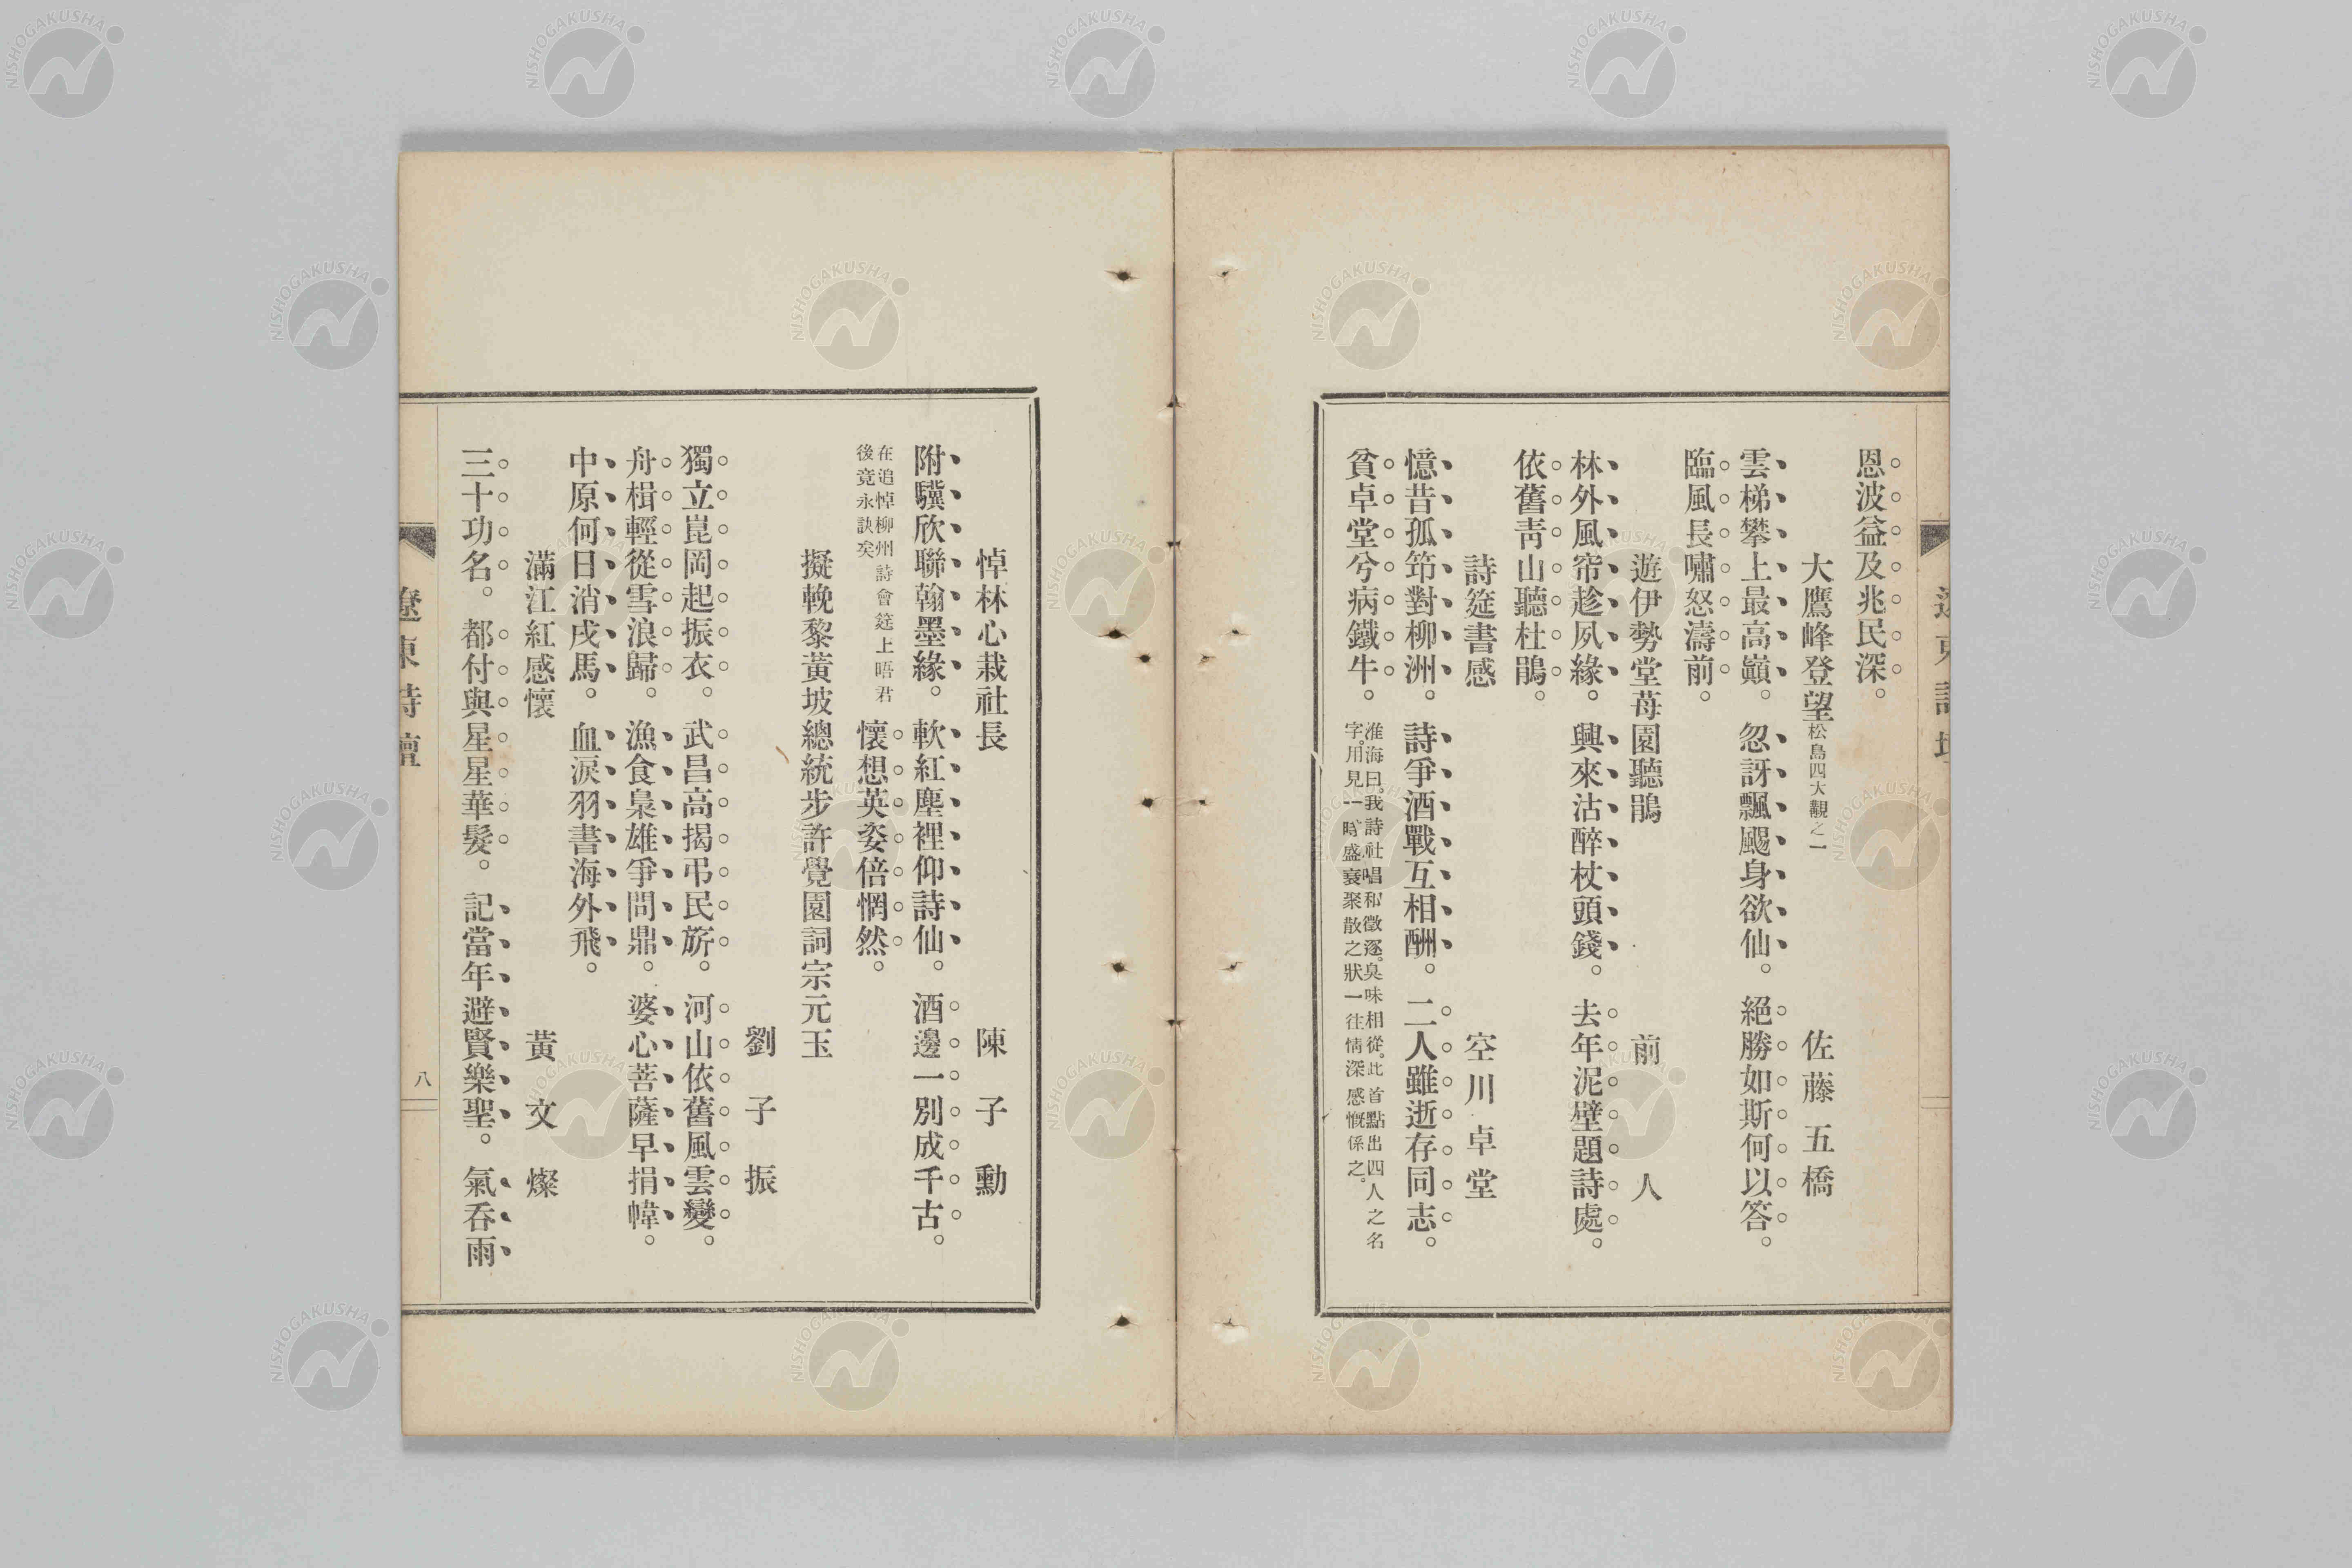 恩波益及兆民深。
大鷹峰登望松島四大觀之一　佐藤五橋
雲梯攀上最高巓。忽訝飄颺身欲仙。絕勝如斯何以答。
臨風長嘯怒濤前。
遊伊勢堂苺園聽鵑　前人
林外風帘趁夙緣。興來沽醉杖頭錢。去年泥壁題詩處。
依舊靑山聽杜鵑。
詩筵書感　空川卓堂
憶昔孤筇對柳洲。詩爭酒戰互相酬。二人雖逝存同志。
貧卓堂兮病鐵牛。
淮海曰。我詩社唱和徵逐。臭味相從。此首點出四人之名
字。用見一時盛衰聚散之狀一往情深感慨係之。
遼東詩壇
悼林心栽社長　陳子勳
附驥欣聯翰墨緣。軟紅塵裡仰詩仙。酒邊一別成千古。
在追悼柳州詩會筵上晤君
後竟永訣矣
懷想英姿倍惘然。
擬輓黎黃坡總統步許覺園詞宗元玉
劉子振
獨立崑岡起振衣。武昌高揭弔民旂。河山依舊風雲變。
舟楫輕從雪浪歸。漁食梟雄爭問鼎。婆心菩薩早捐幃。
中原何日消戍馬。血淚羽書海外飛。
滿江紅感懷　黃文燦
三十功名。都付與星星華髮。記當年避賢樂聖。氣吞雨
遼東詩壇
八
NISHOGAKUSHA